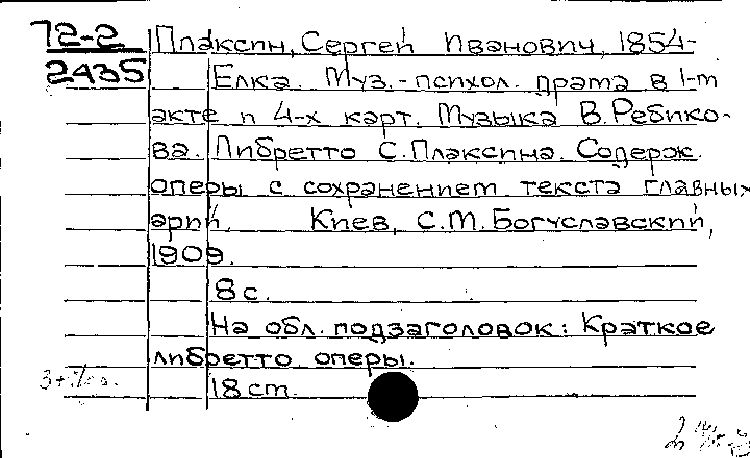 72-2
2435
Плаксин, Сергей Иванович, 1854-
Елка. Муз.-психол. драма в 1-м
акте и 4-х карт. Музыка В. Ребико-
ва. Либретто С. Плаксина. Содерж.
оперы с сохранением текста главных
арий. Киев, С.М. Богуславский,
1909.
8 с.
На обл. подзаголовок: Краткое
либретто оперы.
18 cm.